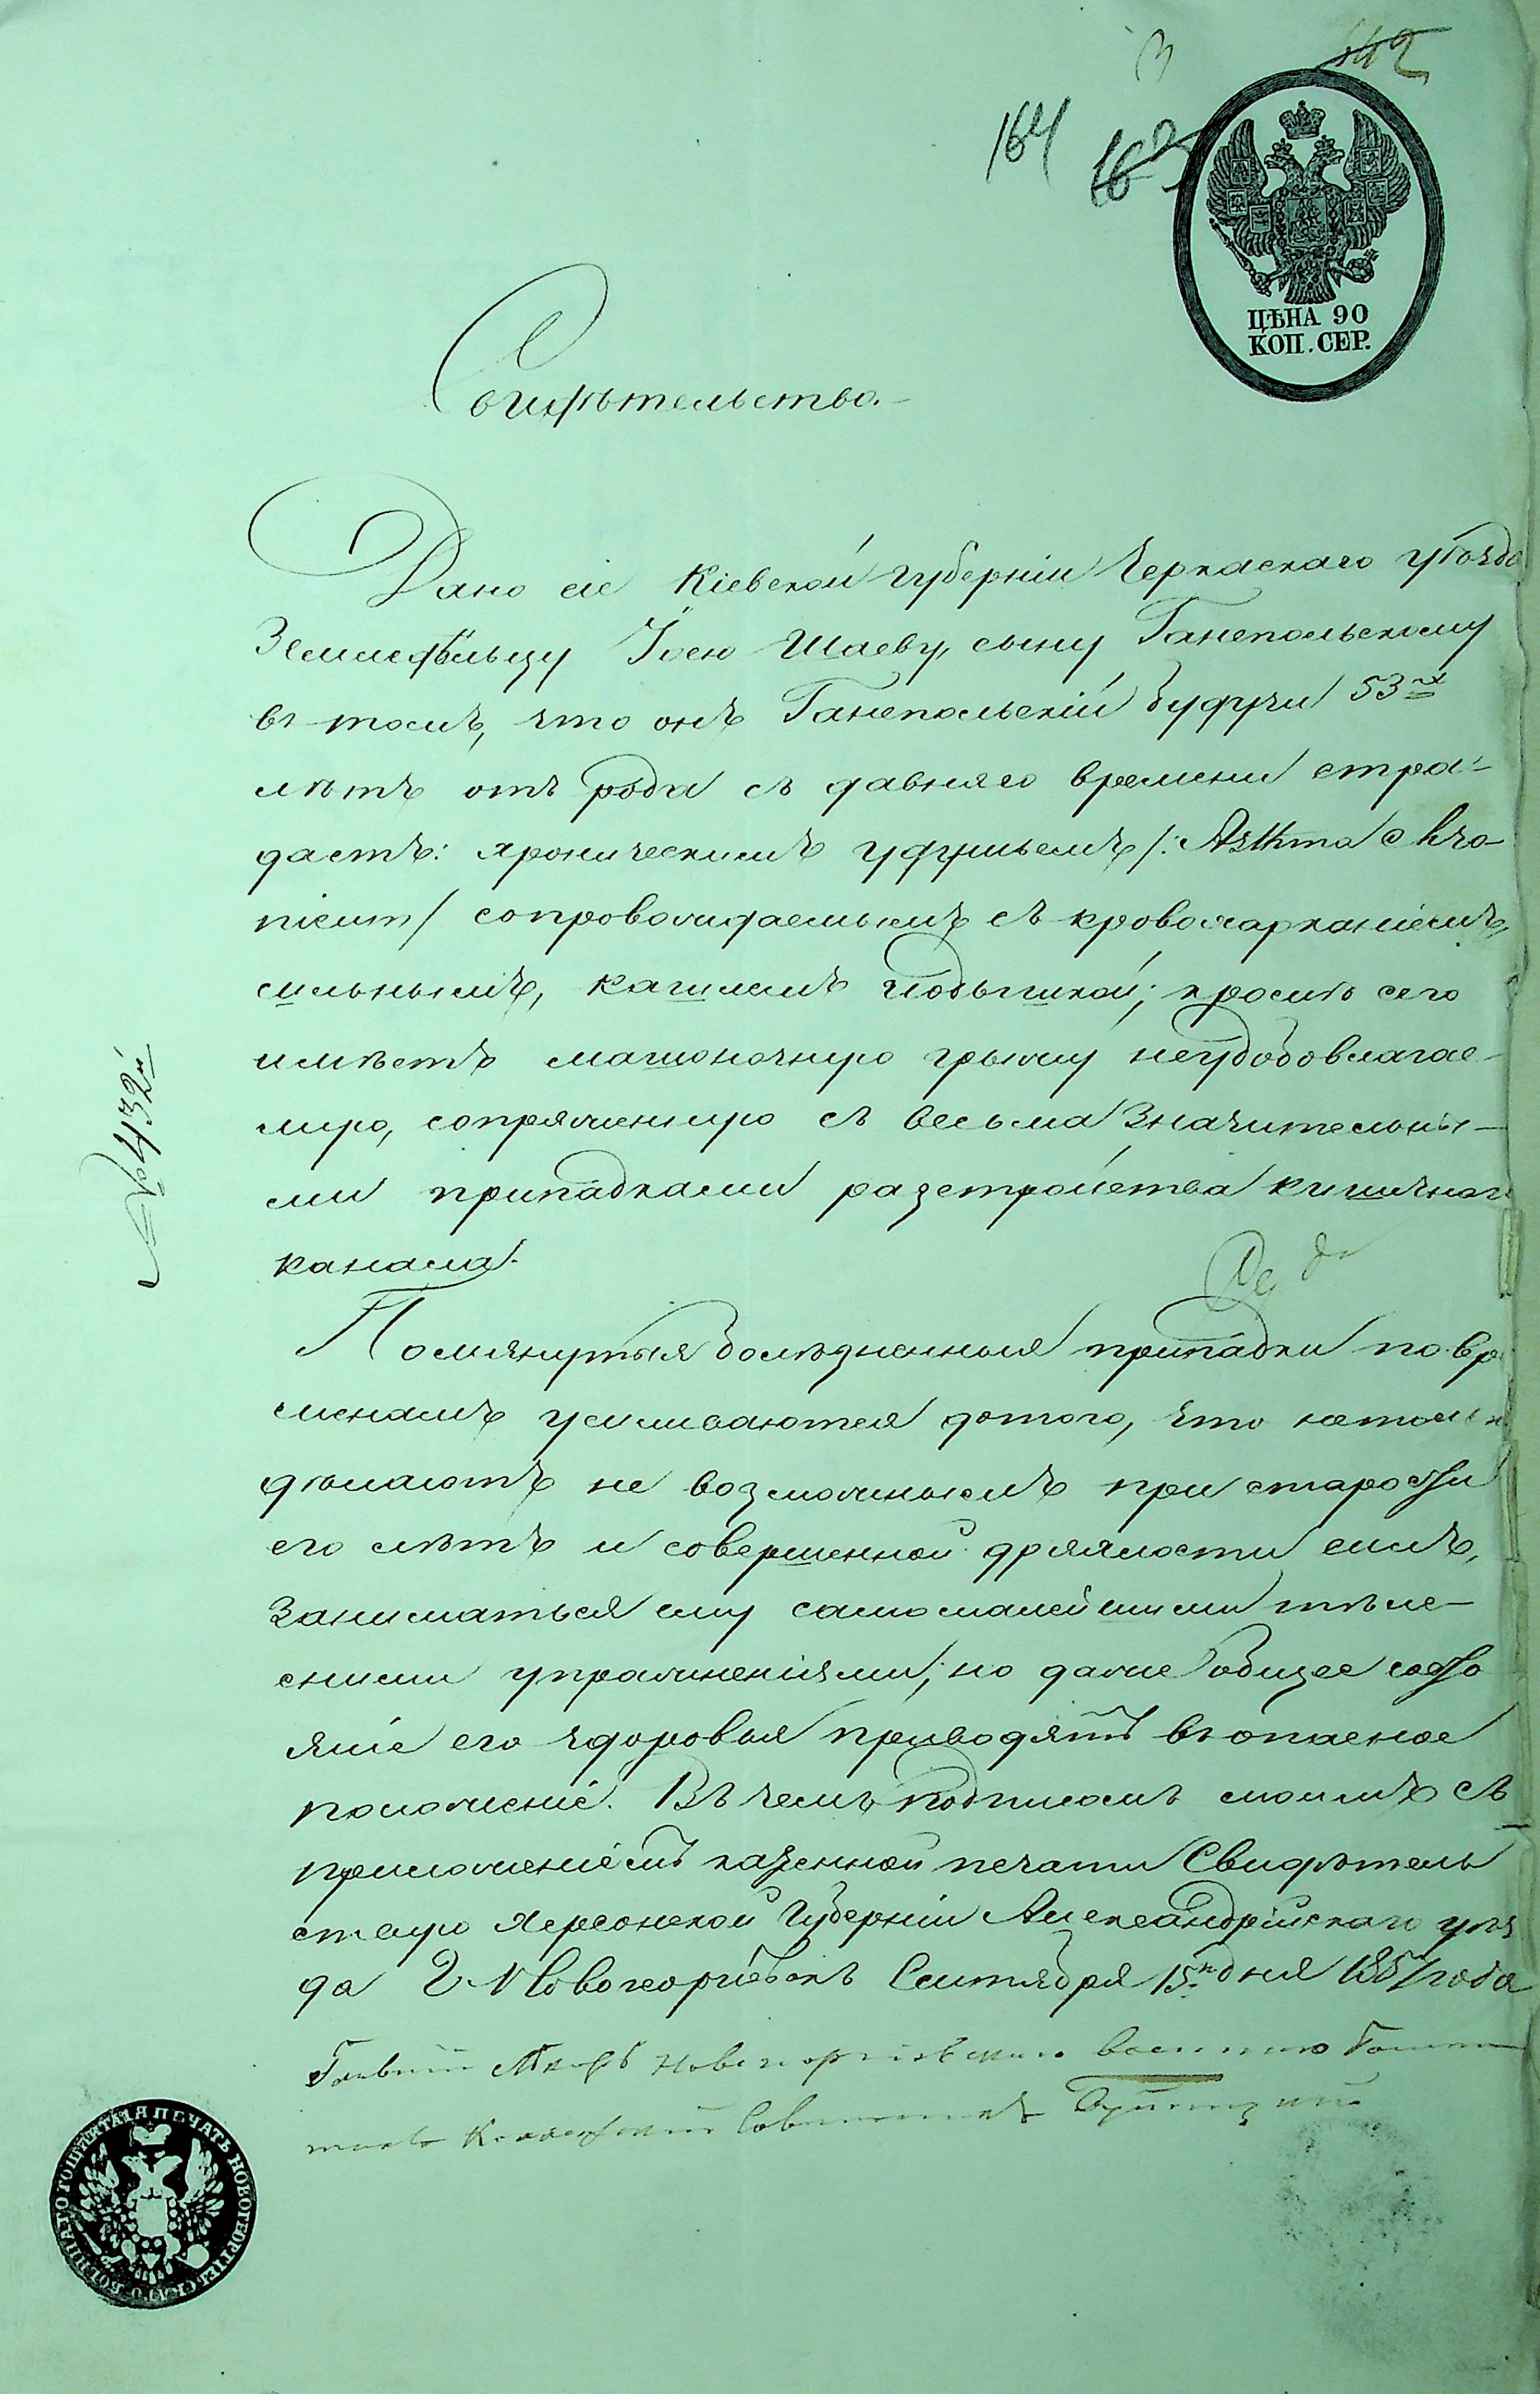 542
164 163
ЦѢНА 90
КОП. СЕР.
Свидѣтельство.
Дано сіе Кіевской губерніи Черкаскаго уѣзда
Земледѣльцу Іосю Шаеву, сыну Ганепольскому
въ томъ, что онъ Ганепольскій будучи 53х
лѣтъ отъ рода съ давняго времени стра-
даетъ: хроническимъ удушьемъ /: Asthma chro-
nicum / сопровождаемымъ съ кровохарканіемъ,
сильнымъ, кашлемъ и одышкой; кромѣ сего
имѣетъ мошоночную грыжу неудобовлагае-
мую, сопряженную съ весьма значительны-
ми припадками разстройства кишечнаго
канала.
Помянутыя болѣзненныя припадки по вре
менамъ усиливаются дотого, что нетольк
дѣлаютъ не возможнымъ при старости
его лѣтъ и совершенной дряхлости силъ,
заниматься ему самомалейшими тѣле-
сними упражненіями; но даже общее состо
яніе его здоровья приводятъ въ опасное
положеніе. Въ чемъ подписомъ моимъ съ
приложеніемъ казенной печати Свидѣтель
ствую Херсонской Губерніи Александрійскаго уѣз
да Г. Новогеоргіевскъ Сентября 15го дня 1857 года
Новогеоргіевскаго Военнаго Гошпи
таля Коллежскій Совѣтникъ
№ 432й
ГОШПИТАЛЯ ПЕЧАТЬ НОВОГЕОРГІЕВСКАГО ВОЕННАГО